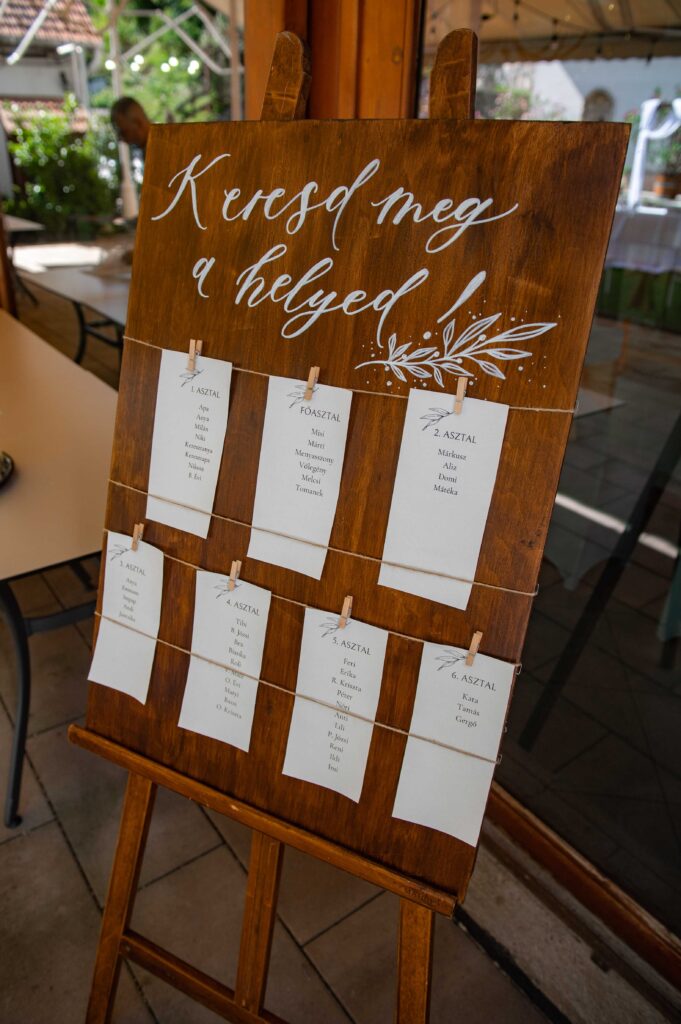 Keresd meg
a helyed!
1. ASZTAL
Apa
Anya
Milán
Niki
Keresztanya
Keresztapa
Nilassa
B. Évi
FŐASZTAL
Misi
Márti
Menyasszony
Vőlegény
Melcsi
Tomanek
2. ASZTAL
Márkusz
Aliz
Domi
Matéka
3. ASZTAL
Anya
4. ASZTAL
Tibi
B. Józsi
Bea
Bianka
Roli
O. Évi
O. Kriszta
5. ASZTAL
Feri
Erika
R. Kriszta
Péter
Nóri
Anti
P. Józsi
Reni
Ildi
Imi
6. ASZTAL
Kata
Tamás
Gergő